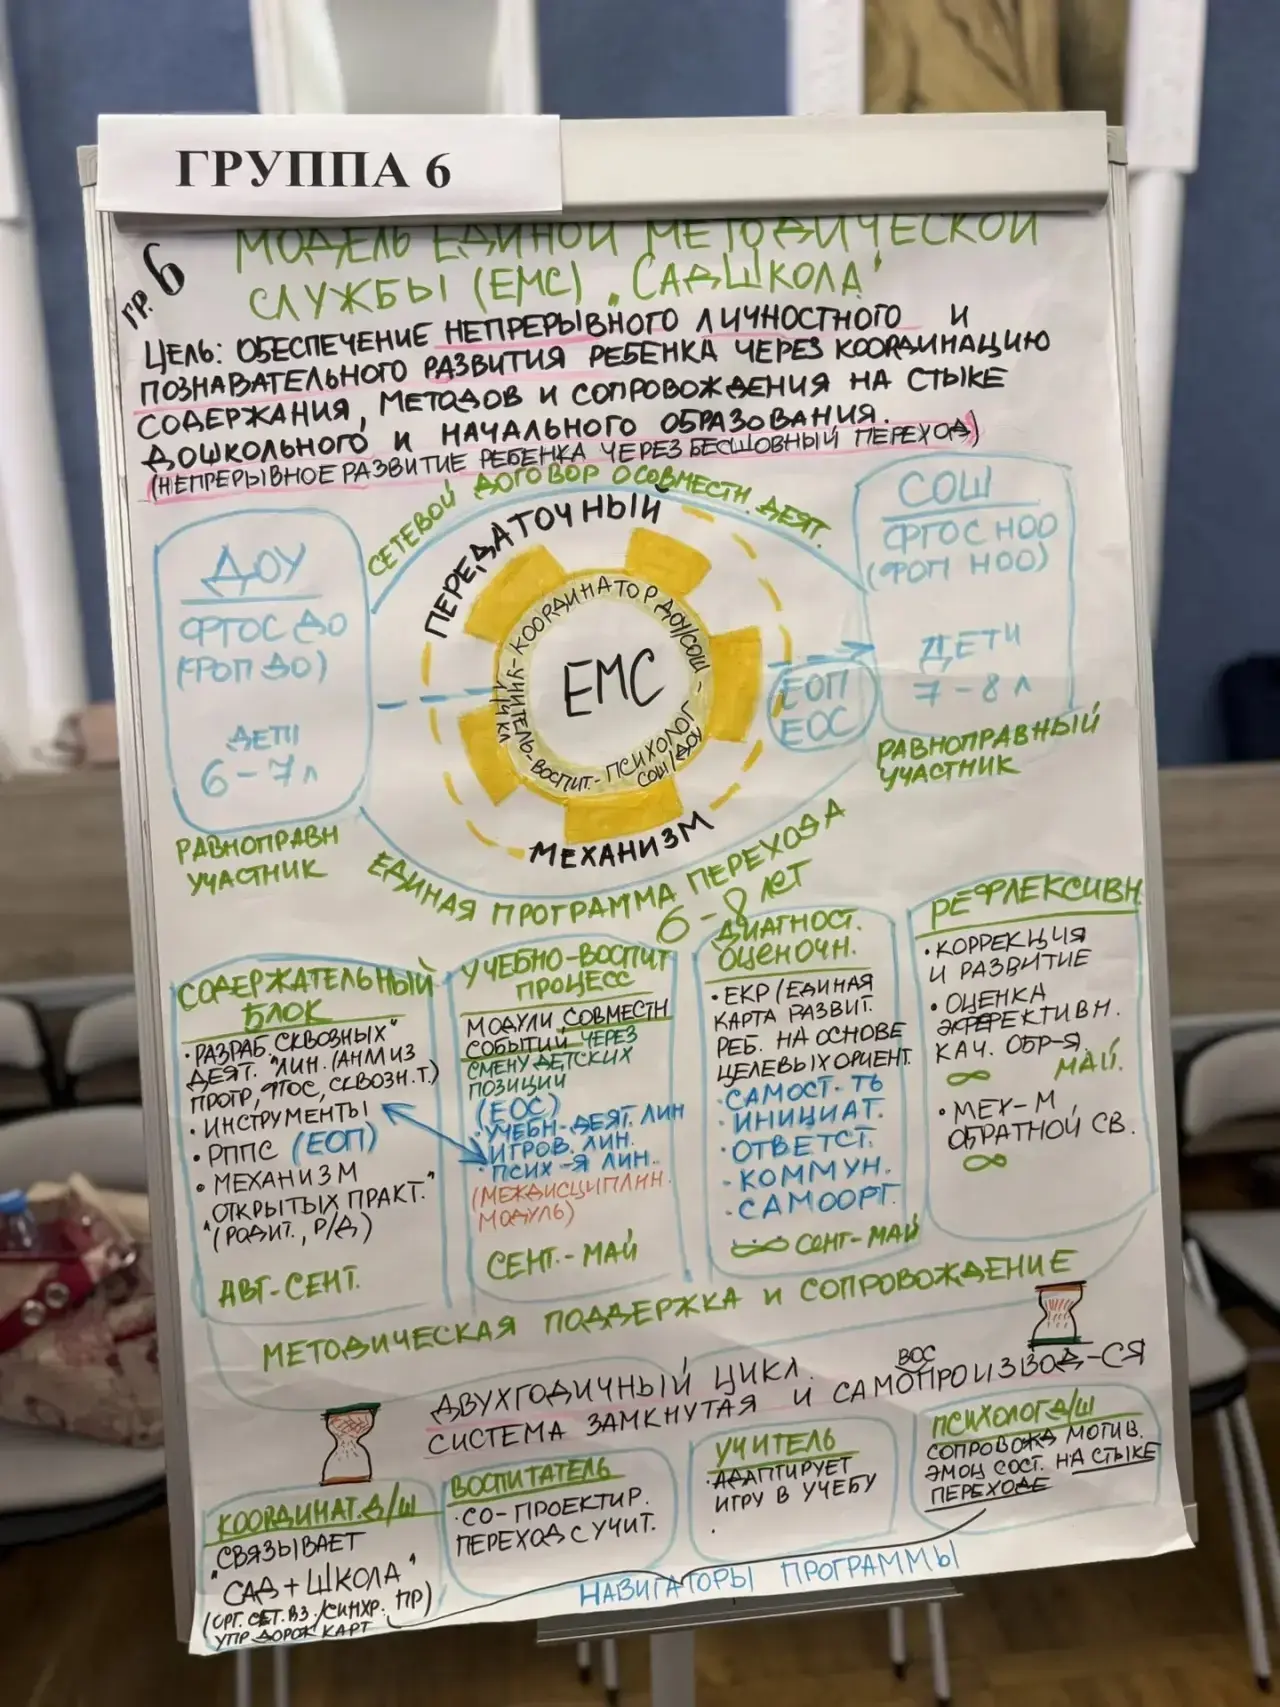 ГРУППА 6
ГР. 6
МОДЕЛЬ ЕДИНОЙ МЕТОДИЧЕСКОЙ
СЛУЖБЫ (ЕМС) "САДШКОЛА"
ЦЕЛЬ: ОБЕСПЕЧЕНИЕ НЕПРЕРЫВНОГО ЛИЧНОСТНОГО И
ПОЗНАВАТЕЛЬНОГО РАЗВИТИЯ РЕБЕНКА ЧЕРЕЗ КООРДИНАЦИЮ
СОДЕРЖАНИЯ, МЕТОДОВ И СОПРОВОЖДЕНИЯ НА СТЫКЕ
ДОШКОЛЬНОГО И НАЧАЛЬНОГО ОБРАЗОВАНИЯ.
(НЕПРЕРЫВНОЕ РАЗВИТИЕ РЕБЕНКА ЧЕРЕЗ БЕСШОВНЫЙ ПЕРЕХОД)
СЕТЕВОЙ ДОГОВОР О СОВМЕСТН. ДЕЯТ.
ДОУ
ФГОС ДО
ДЕТИ
6-7 л
РАВНОПРАВН
УЧАСТНИК
ПЕРЕДАТОЧНЫЙ
КООРДИНАТОР ДОУ/СОШ -
ПСИХОЛОГ
СОШ/ДОУ
- ВОСПИТ. -
УЧИТЕЛЬ -
ЕМС
МЕХАНИЗМ
ЕОП
ЕОС
СОШ
ФГОС НОО
(ФОП НОО)
ДЕТИ
7-8 л
РАВНОПРАВНЫЙ
УЧАСТНИК
ЕДИНАЯ ПРОГРАММА ПЕРЕХОДА
6-8 ЛЕТ
СОДЕРЖАТЕЛЬНЫЙ
БЛОК
• РАЗРАБ. СКВОЗНЫХ"
ДЕЯТ. "ЛИН. (АНАЛИЗ
ПРОГР, ФГОС, СКВОЗН. Т.)
• ИНСТРУМЕНТЫ
• РППС (ЕОП)
• МЕХАНИЗМ
"ОТКРЫТЫХ ПРАКТ."
(РОДИТ., Р/Д)
АВГ-СЕНТ.
УЧЕБНО-ВОСПИТ
ПРОЦЕСС
МОДУЛИ СОВМЕСТН
СОБЫТИЙ ЧЕРЕЗ
СМЕНУ ДЕТСКИХ
ПОЗИЦИЙ
(ЕОС)
• УЧЕБН-ДЕЯТ. ЛИН
• ИГРОВ. ЛИН.
• ПСИХ-Я ЛИН.
(МЕЖДИСЦИПЛИН.
МОДУЛЬ)
СЕНТ.-МАЙ
ДИАГНОСТ.
ОЦЕНОЧН.
• ЕКР (ЕДИНАЯ
КАРТА РАЗВИТ.
РЕБ. НА ОСНОВЕ
ЦЕЛЕВЫХ ОРИЕНТ.
• САМОСТ-ТЬ
• ИНИЦИАТ.
• ОТВЕТСТ.
• КОММУН.
• САМООРГ.
СЕНТ-МАЙ
РЕФЛЕКСИВН.
• КОРРЕКЦИЯ
И РАЗВИТИЕ
• ОЦЕНКА
ЭФФЕКТИВН.
КАЧ. ОБР-Я
∞ МАЙ.
• МЕХ-М
ОБРАТНОЙ СВ.
∞
МЕТОДИЧЕСКАЯ ПОДДЕРЖКА И СОПРОВОЖДЕНИЕ
ДВУХГОДИЧНЫЙ ЦИКЛ.
ВОС
СИСТЕМА ЗАМКНУТАЯ И САМОПРОИЗВОД-СЯ
КООРДИНАТ. Д/Ш
СВЯЗЫВАЕТ
"САД + ШКОЛА"
(ОРГ. СЕТ. ВЗ./СИНХР. ПР)
УПР ДОРОЖ КАРТ
ВОСПИТАТЕЛЬ
• СО-ПРОЕКТИР.
ПЕРЕХОД С УЧИТ.
УЧИТЕЛЬ
• АДАПТИРУЕТ
ИГРУ В УЧЕБУ
ПСИХОЛОГ Д/Ш
СОПРОВОЖД МОТИВ.
ЭМОЦ СОСТ. НА СТЫКЕ
ПЕРЕХОДЕ
НАВИГАТОРЫ ПРОГРАММЫ